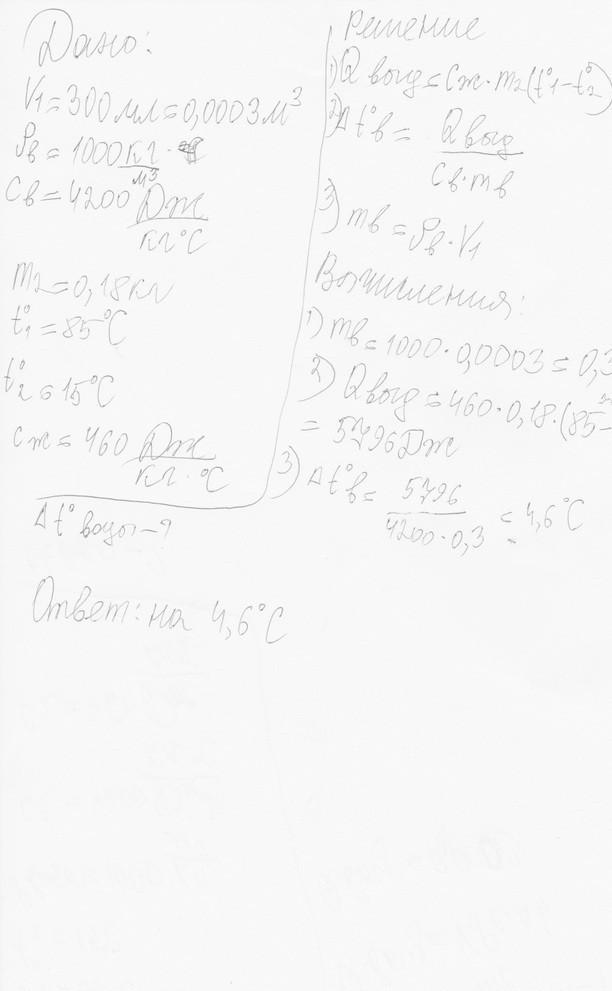 Дано:
V1=300мл=0,0003м³
ρв=1000 кг/м³
Cв=4200 Дж/кг°С
m2=0,18кг
t°1=85°С
t°2=15°С
Cж=460 Дж/кг·°С
Δt° воды-?
Решение
1)Qвыд=Cж·m2(t°1-t°2)
2)Δt°в= Qвыд/Cв·mв
3)mв=ρв·V1
Вычисления:
1)mв=1000·0,0003=0,3
2)Qвыд=460·0,18·(85-
=5796Дж
3)Δt°в= 5796/4200·0,3 =4,6°С
Ответ: на 4,6°С